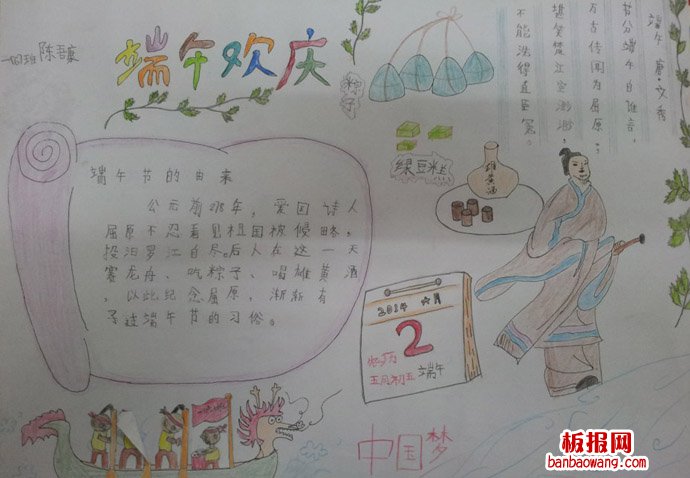 端午欢庆
粽子
端午 唐·文秀
节分端午自谁言,
万古传闻为屈原。
堪笑楚江空渺渺,
不能洗得直臣冤。
端午节的由来
公元前278年,爱国诗人
屈原不忍看见祖国被侵略,
投汨罗江自尽后人在这一天
赛龙舟、吃粽子、喝雄黄酒
,以此纪念屈原,渐渐有
了过端午节的习俗。
绿豆糕
雄黄酒
2014 六月
2
农历
五月初五
端午
中国梦
板报网
banbaowang.com